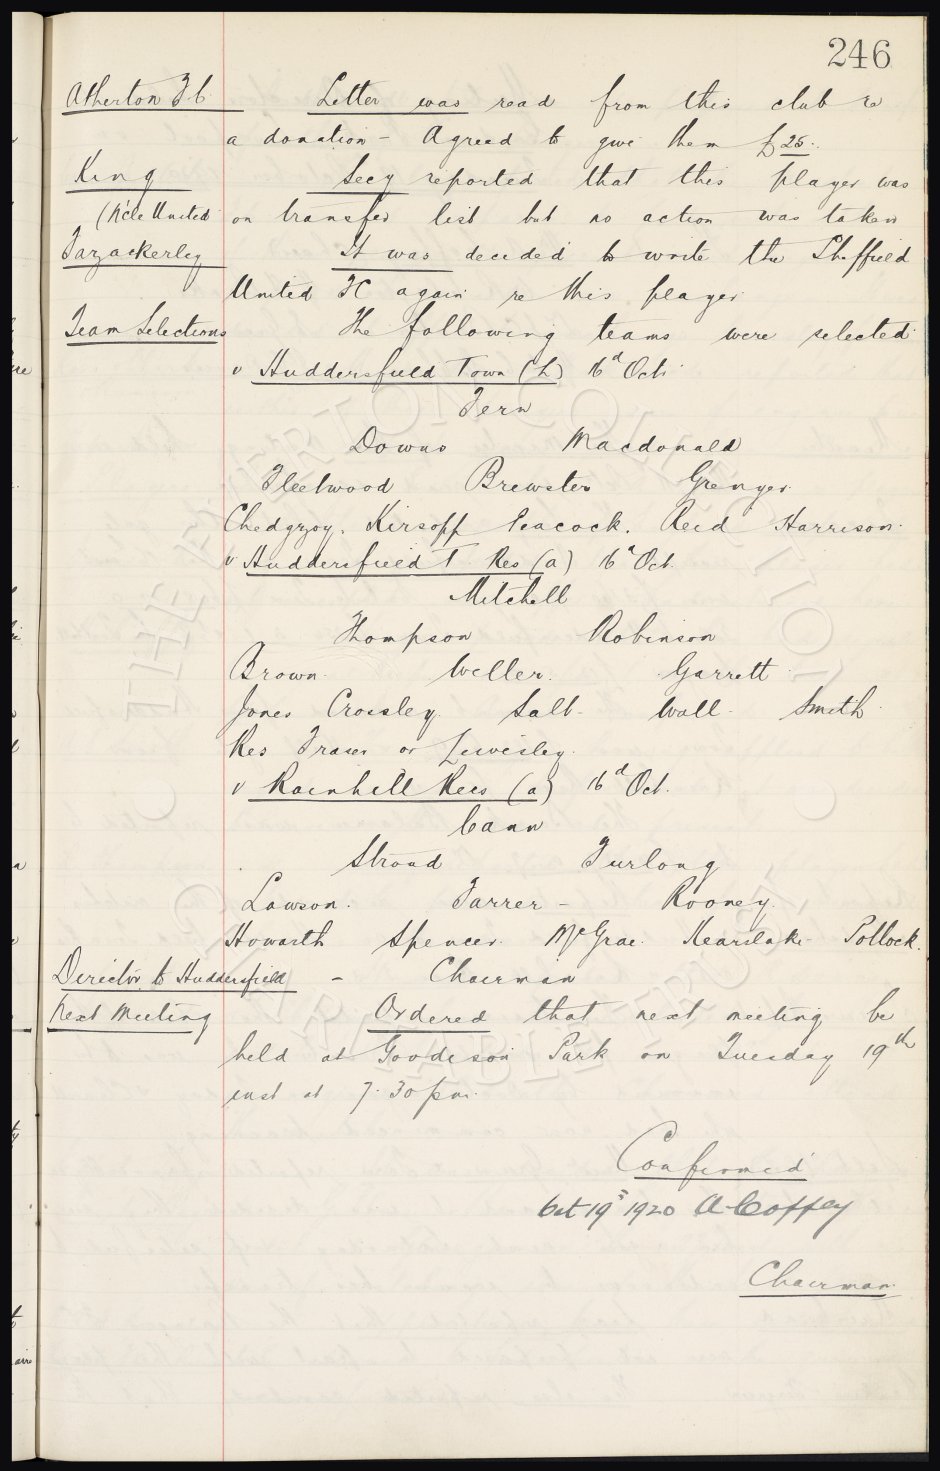 246
Atherton F.C. Letter was read from this club re
a donation - Agreed to give them £25.
King Secy reported that this player was
(N'cle United on transfer list but no action was taken
Fazackerley It was decided to write the Sheffield
United FC again re this player
Team Selections The following teams were selected
v Huddersfield Town (H) 16th Oct.
Fern
Downs Macdonald
Fleetwood Brewster Grenyer.
Chedgzoy. Kirsopp Peacock. Reid Harrison.
v Huddersfield T Res (a) 16th Oct.
Mitchell
Thompson Robinson
Brown. Weller. Garrett.
Jones Crossley. Salt. Wall. Smith
Res Fraser or Livesley.
v Rainhill Recs (a) 16th Oct.
Cann
Stroud Furlong
Lawson. Farrer - Rooney.
Howarth Spencer. McGrae. Kearslake. Pollock.
Director to Huddersfield - Chairman
Next Meeting Ordered that next meeting be
held at Goodison Park on Tuesday 19th
inst at 7.30 pm.
Confirmed
Oct 19th 1920 A Coffey
Chairman
THE EVERTON COLLECTION
CHARITABLE TRUST